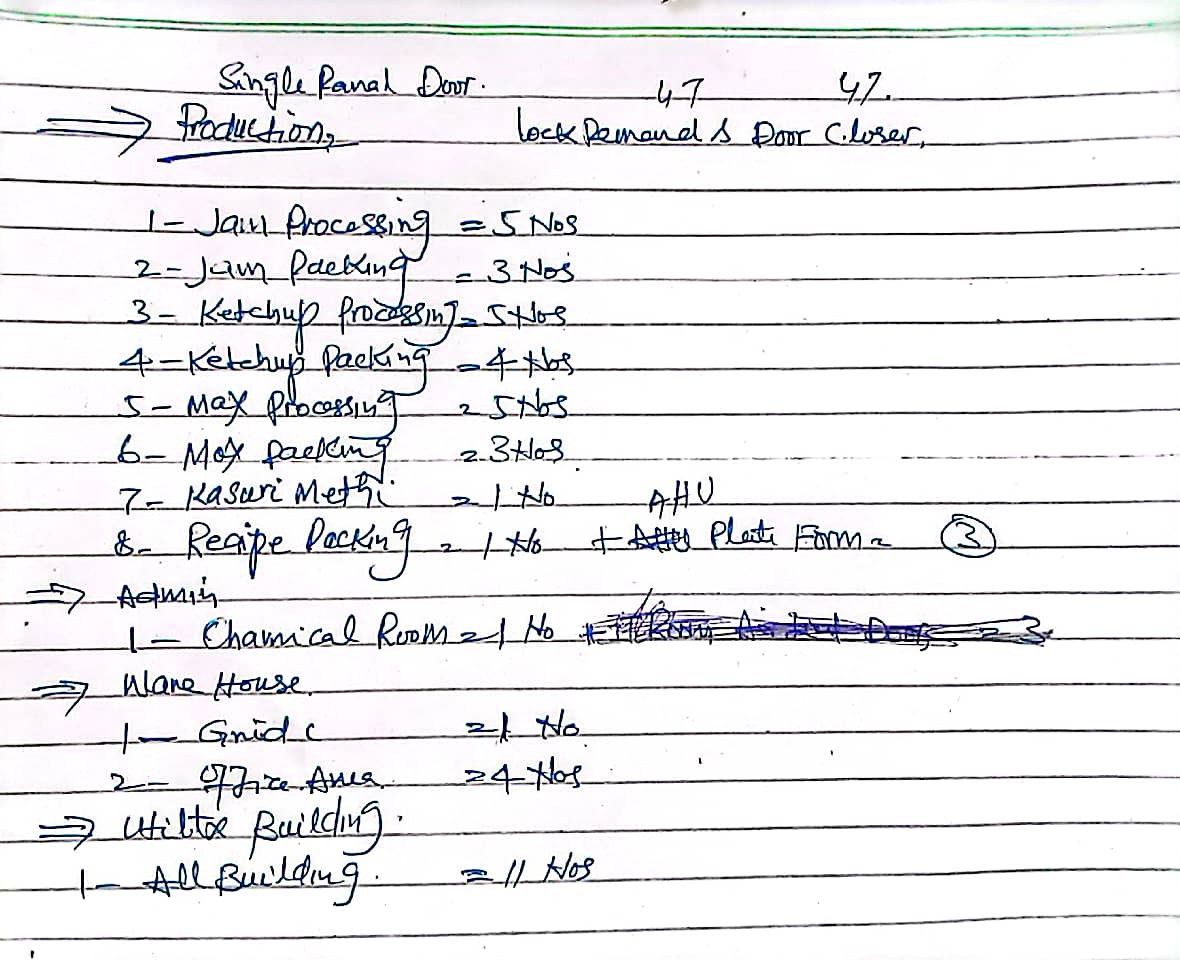 Single Panal Door. 47 47.
⇒ Production, Lock Demand & Door Closer,
1- Jam Processing = 5 Nos
2- Jam Packing = 3 Nos
3- Ketchup Processing = 5 Nos
4- Ketchup Packing = 4 Nos
5- May Processing = 5 Nos
6- May Packing = 3 Nos
7- Kasuri Methi = 1 No AHU
8- Recipe Packing = 1 No + Plate Form = 3
⇒ Admin
1- Chamical Room = 1 No
⇒ Ware House.
1- Grid C = 1 No
2- Office Area. = 4 Nos
⇒ Building.
1- All Building. = 11 Nos